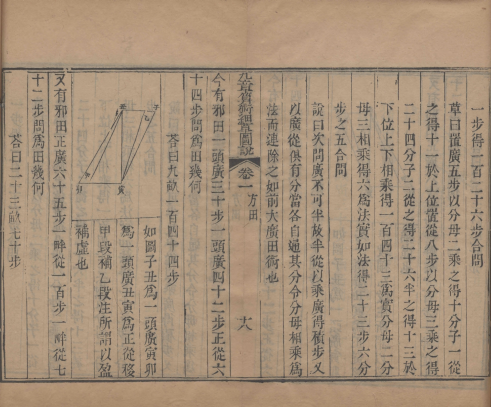 一步得一百二十六步合問
草曰置廣五步以分母二乘之得十分子一從
之得十一於上位置從八步以分母三乘之得
二十四分子二從之得二十六半之得十三於
下位上下相乘得一百四十三爲實分母二分
母三相乘得六爲法實如法得二十三步六分
步之五合問
說曰次問廣不可半故半從以乘廣得積步又
以廣從俱有分當各自通其分令分母相乘爲
法而連除之如前大廣田術也
九章算術細草圖說
卷一
方田
十八
今有邪田一頭廣三十步一頭廣四十二步正從六
十四步問爲田幾何
荅曰九畝一百四十四步
如圖子丑爲一頭廣寅卯
爲一頭廣丑寅爲正從移
甲段補乙段注所謂以盈
補虛也
又有邪田正廣六十五步一畔從一百步一畔從七
十二步問爲田幾何
荅曰二十三畝七十步